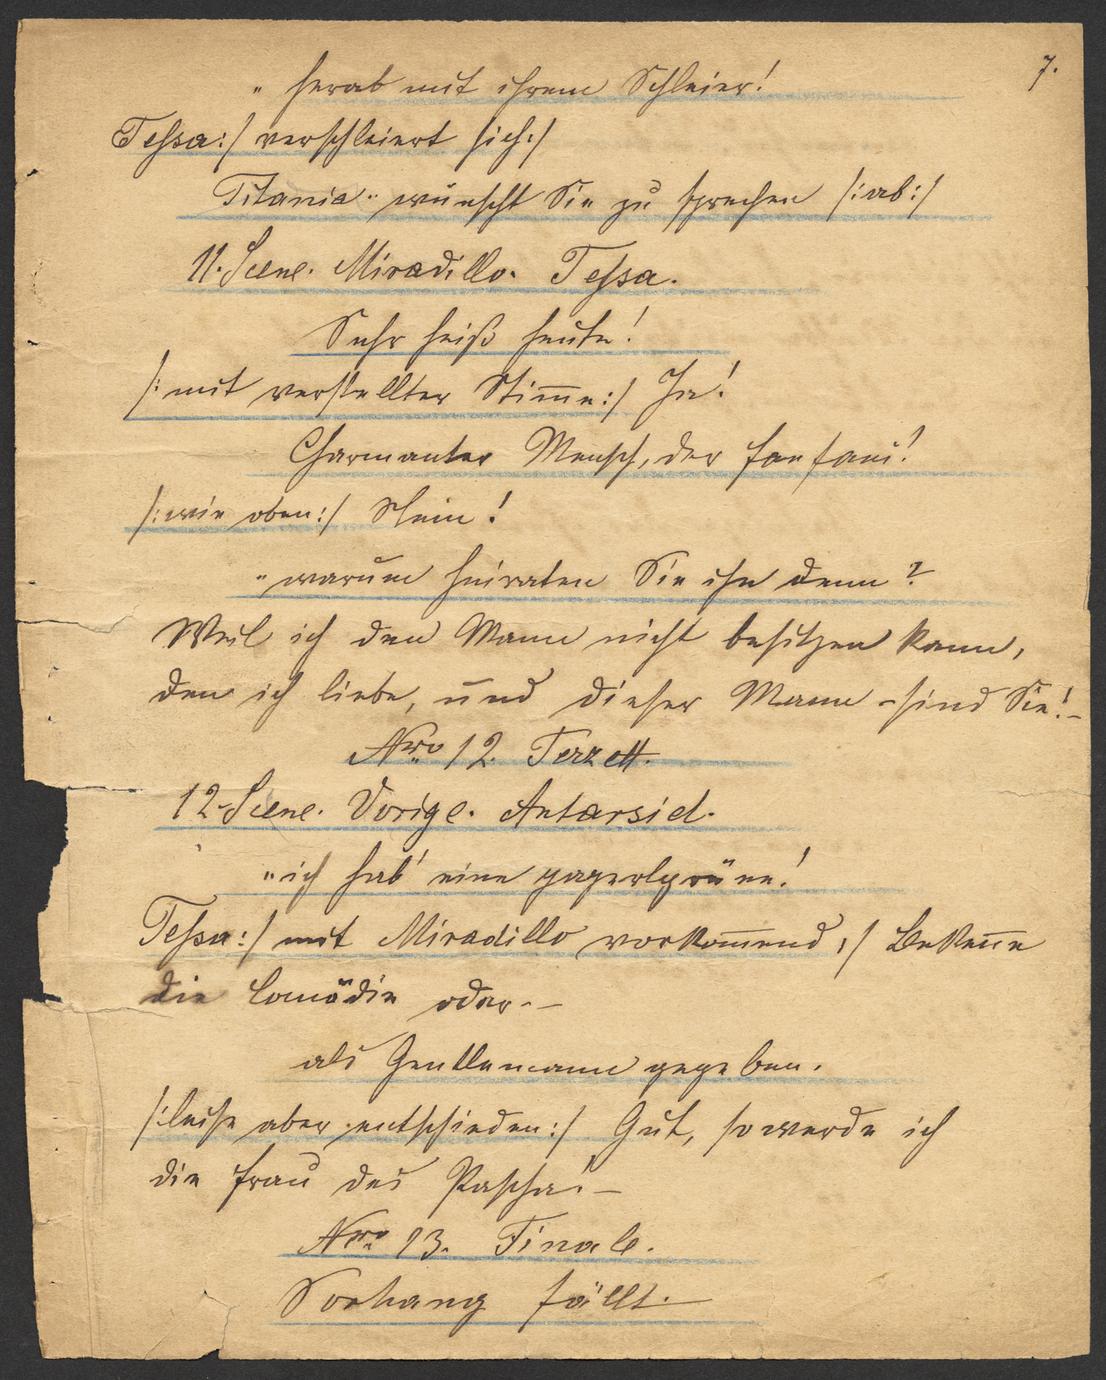 7.
„ herab mit ihrem Schleier!
Tessa:/ verschleiert sich:/
Titania„ wünscht Sie zu sprechen /:ab:/
11. Scene. Miradillo. Tessa.
Sehr heiß heute!
/:mit verstellter Stim̅e:/ Ja!
Charmanter Mensch, der Fanfani!
/:wie oben:/ Nein!
„warum heiraten Sie ihn denn?
Weil ich den Mann nicht besitzen kann,
den ich liebe, und dieser Mann - sind Sie! -
Nro 12. Terzett.
12. Scene. Vorige. Antarsid.
„ich hab' eine papperlgrüne!
Tessa:/ mit Miradillo vorkom̅end:/ Beken̅e
die Comödie oder--
als Gentlemann gegeben.
/:leise aber entschieden:/ Gut, so werde ich
die Frau des Pascha! -
Nro 13. Finale.
Vorhang fällt.